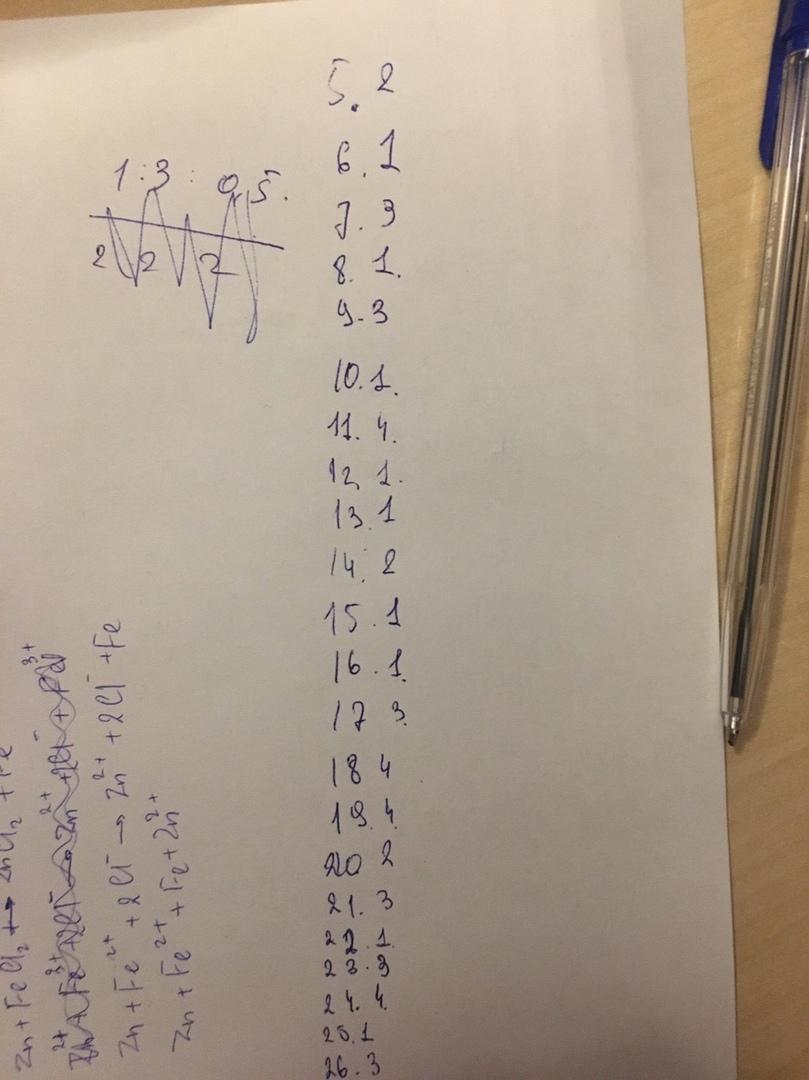 5. 2
6. 1
7. 3
8. 1.
9. 3
10. 1.
11. 4.
12 1.
13. 1
14. 2
15. 1
16. 1.
17 3.
18 4
19. 4.
20 2
21. 3
22. 1.
23. 3
24. 4.
25. 1
26. 3
1 : 3 : 0,5.
2 2 2
Zn + FeCl₂ → ZnCl₂ + Fe
Zn + Fe²⁺ + 2Cl⁻ → Zn²⁺ + 2Cl⁻ + Fe
Zn + Fe²⁺ + Fe + Zn²⁺